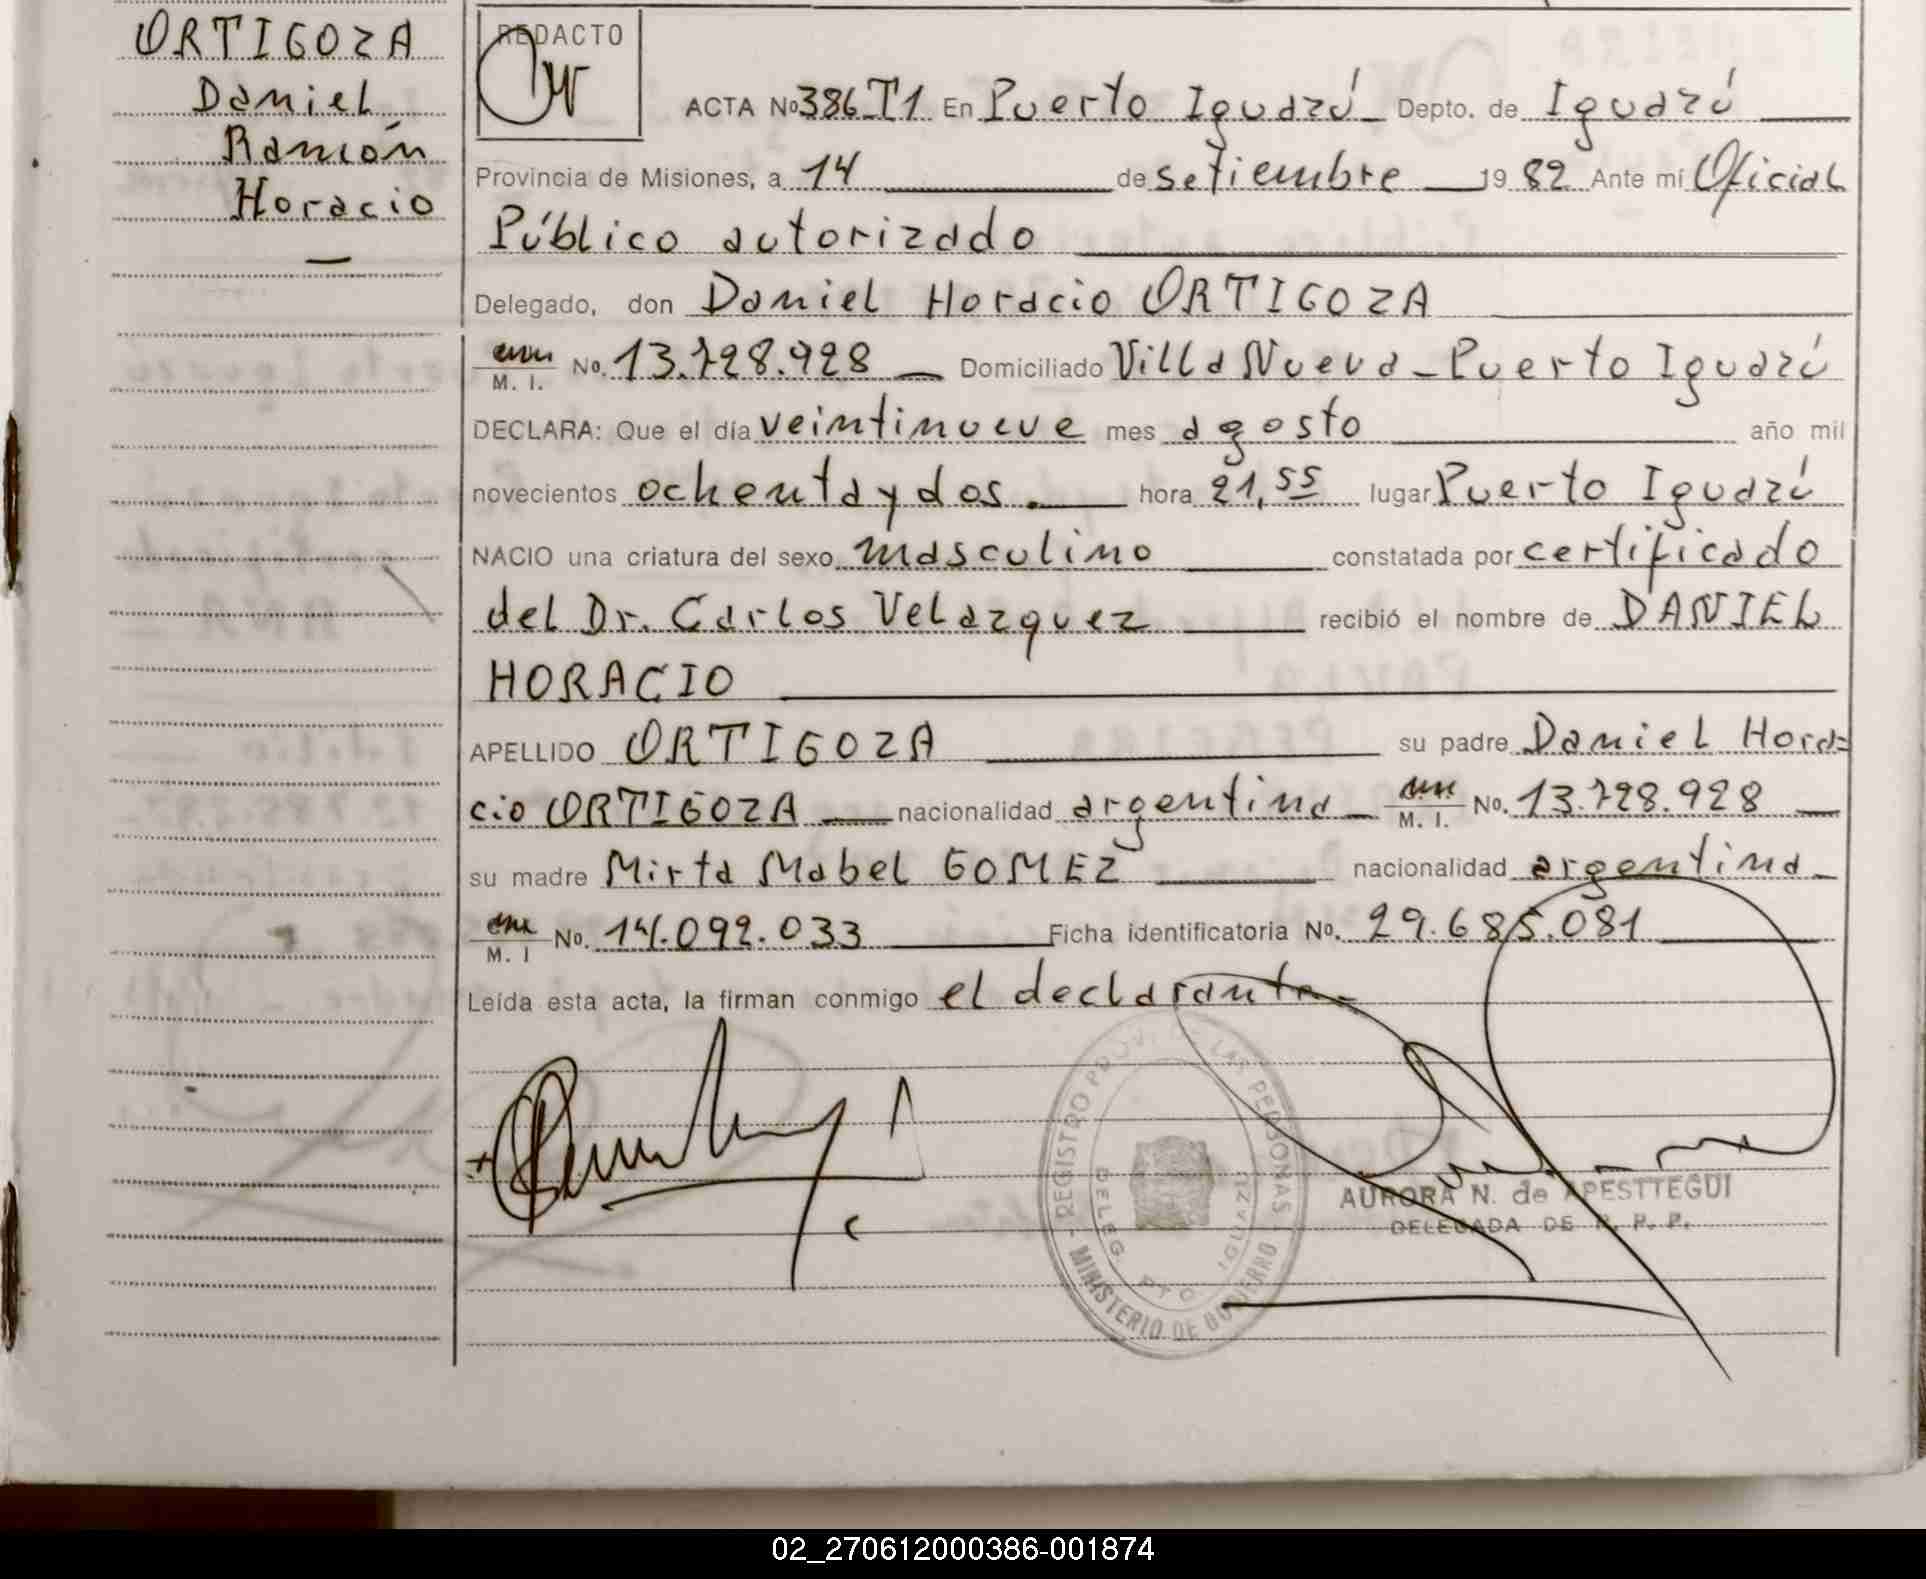 ORTIGOZA
Daniel
Ramón
Horacio
REDACTO
ACTA No 386 T1 En Puerto Iguazú Depto. de Iguazú
Provincia de Misiones, a 14 de setiembre 1982 Ante mí Oficial
Público autorizado
Delegado, don Daniel Horacio ORTIGOZA
M. I. No. 13.728.928 Domiciliado Villa Nueva - Puerto Iguazú
DECLARA: Que el día veintinueve mes agosto año mil
novecientos ochenta y dos. hora 21,55 lugar Puerto Iguazú
NACIO una criatura del sexo masculino constatada por certificado
del Dr. Carlos Velazquez recibió el nombre de DANIEL
HORACIO
APELLIDO ORTIGOZA su padre Daniel Hora=
cio ORTIGOZA nacionalidad argentina M. I. No. 13.728.928
su madre Mirta Mabel GOMEZ nacionalidad argentina
M. I No. 14.092.033 Ficha identificatoria No. 29.685.081
Leída esta acta, la firman conmigo el declarante
REGISTRO PROV. LAS PERSONAS
DELEG. PTO. IGUAZU
MINISTERIO DE GOBIERNO
AURORA N. de APESTTEGUI
DELEGADA DE R. P. P.
02_270612000386-001874